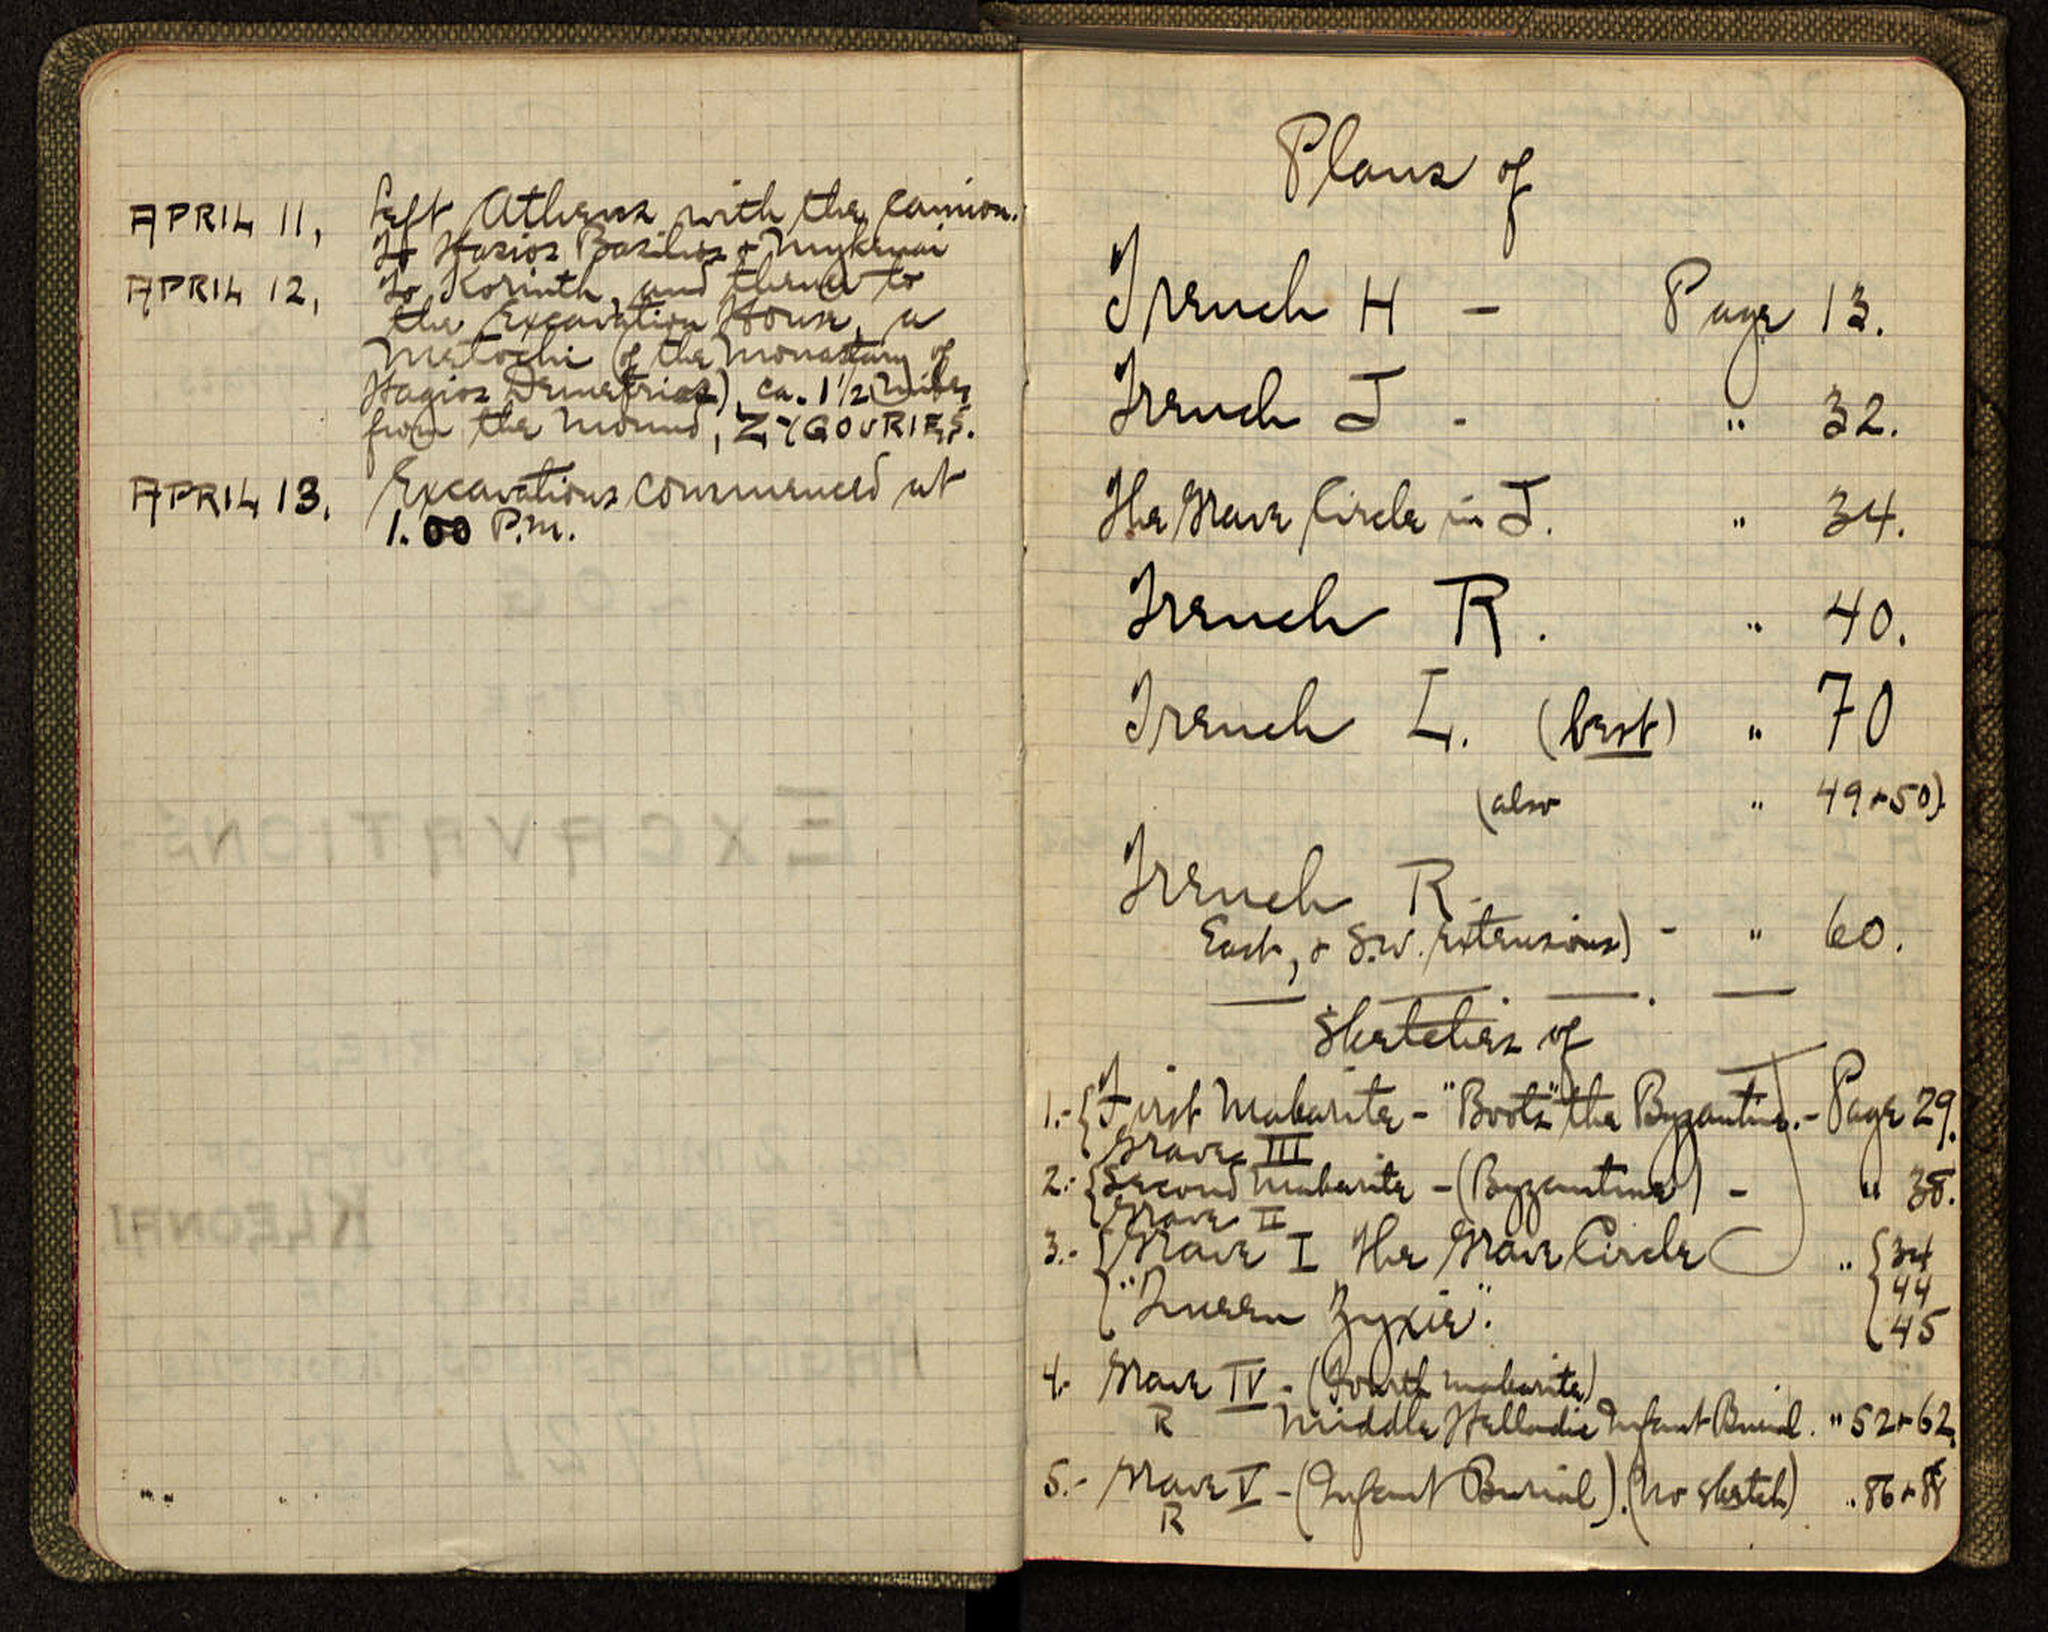 APRIL 11, Left Athens with the camion.
To Hagios Basilios & Mykenai
APRIL 12, To Korinth, and thence to
the Excavation House, a
Metochi (of the Monastery of
Hagios Demetrios), ca. 1 1/2 miles
from the Mound, ZYGOURIES.
APRIL 13. Excavations commenced at
1.00 P.M.
Plans of
Trench H - Page 13.
Trench J - " 32.
The Grave Circle in J. " 34.
Trench R. " 40.
Trench L. (best) " 70
(also " 49 & 50).
Trench R.
East, & S.W. extensions) - " 60.
Sketches of
1.- {First Makarite - "Boots" the Byzantine. - Page 29.
Grave III
2.- {Second Makarite - (Byzantine) - " 38.
Grave II
3.- {Grave I The Grave Circle J " {34
44
{"Queen Zyxie". 45
4.- Grave IV - (Fourth makarite)
R Middle Helladic Infant Burial. " 52 & 62.
5.- Grave V - (Infant Burial). (No sketch) " 86 & 88
R